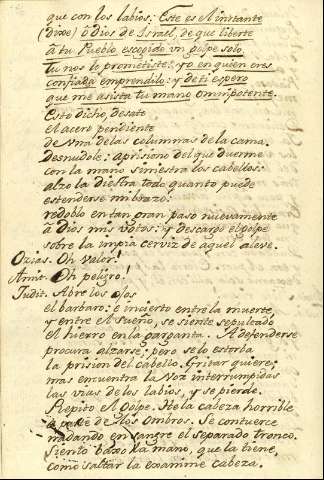 que con los labios: Este es el instante
(dixe) ô Dios de Israel, de que liberte
â tu Pueblo escogido vn golpe solo.
Tu nos lo prometiste: yo en quien eres
confiada emprendilo: y de ti espero
que me asista tu mano omnipotente.
Esto dicho, desate
el acero pendiente
de vna de las columnas de la cama.
Desnudole: aprisiono del que duerme
con la mano siniestra los cabellos:
alzo la diestra todo quanto puede
estenderse mi brazo:
redoblo en tan gran paso nuevamente
â Dios mis votos: y descargo el golpe
sobre la impia cerviz de aquel aleve.
Ozias. Oh valor!
Amit. Oh peligro!
Judit. Abre los ojos
el barbaro: e incierto entre la muerte,
y entre el sueño, se siente sepultado
el hierro en la garganta. A defenderse
procura alzarse; pero se lo estorba
la prision del cabello. Gritar quiere;
mas encuentra la voz interrumpidas
las vias de los labios, y se pierde.
Repito el Golpe. He la cabeza horrible
los ombros. Se contuerce
nadando en sangre el separado tronco.
Siento baxo la mano, que la tiene,
como saltar la examine cabeza.